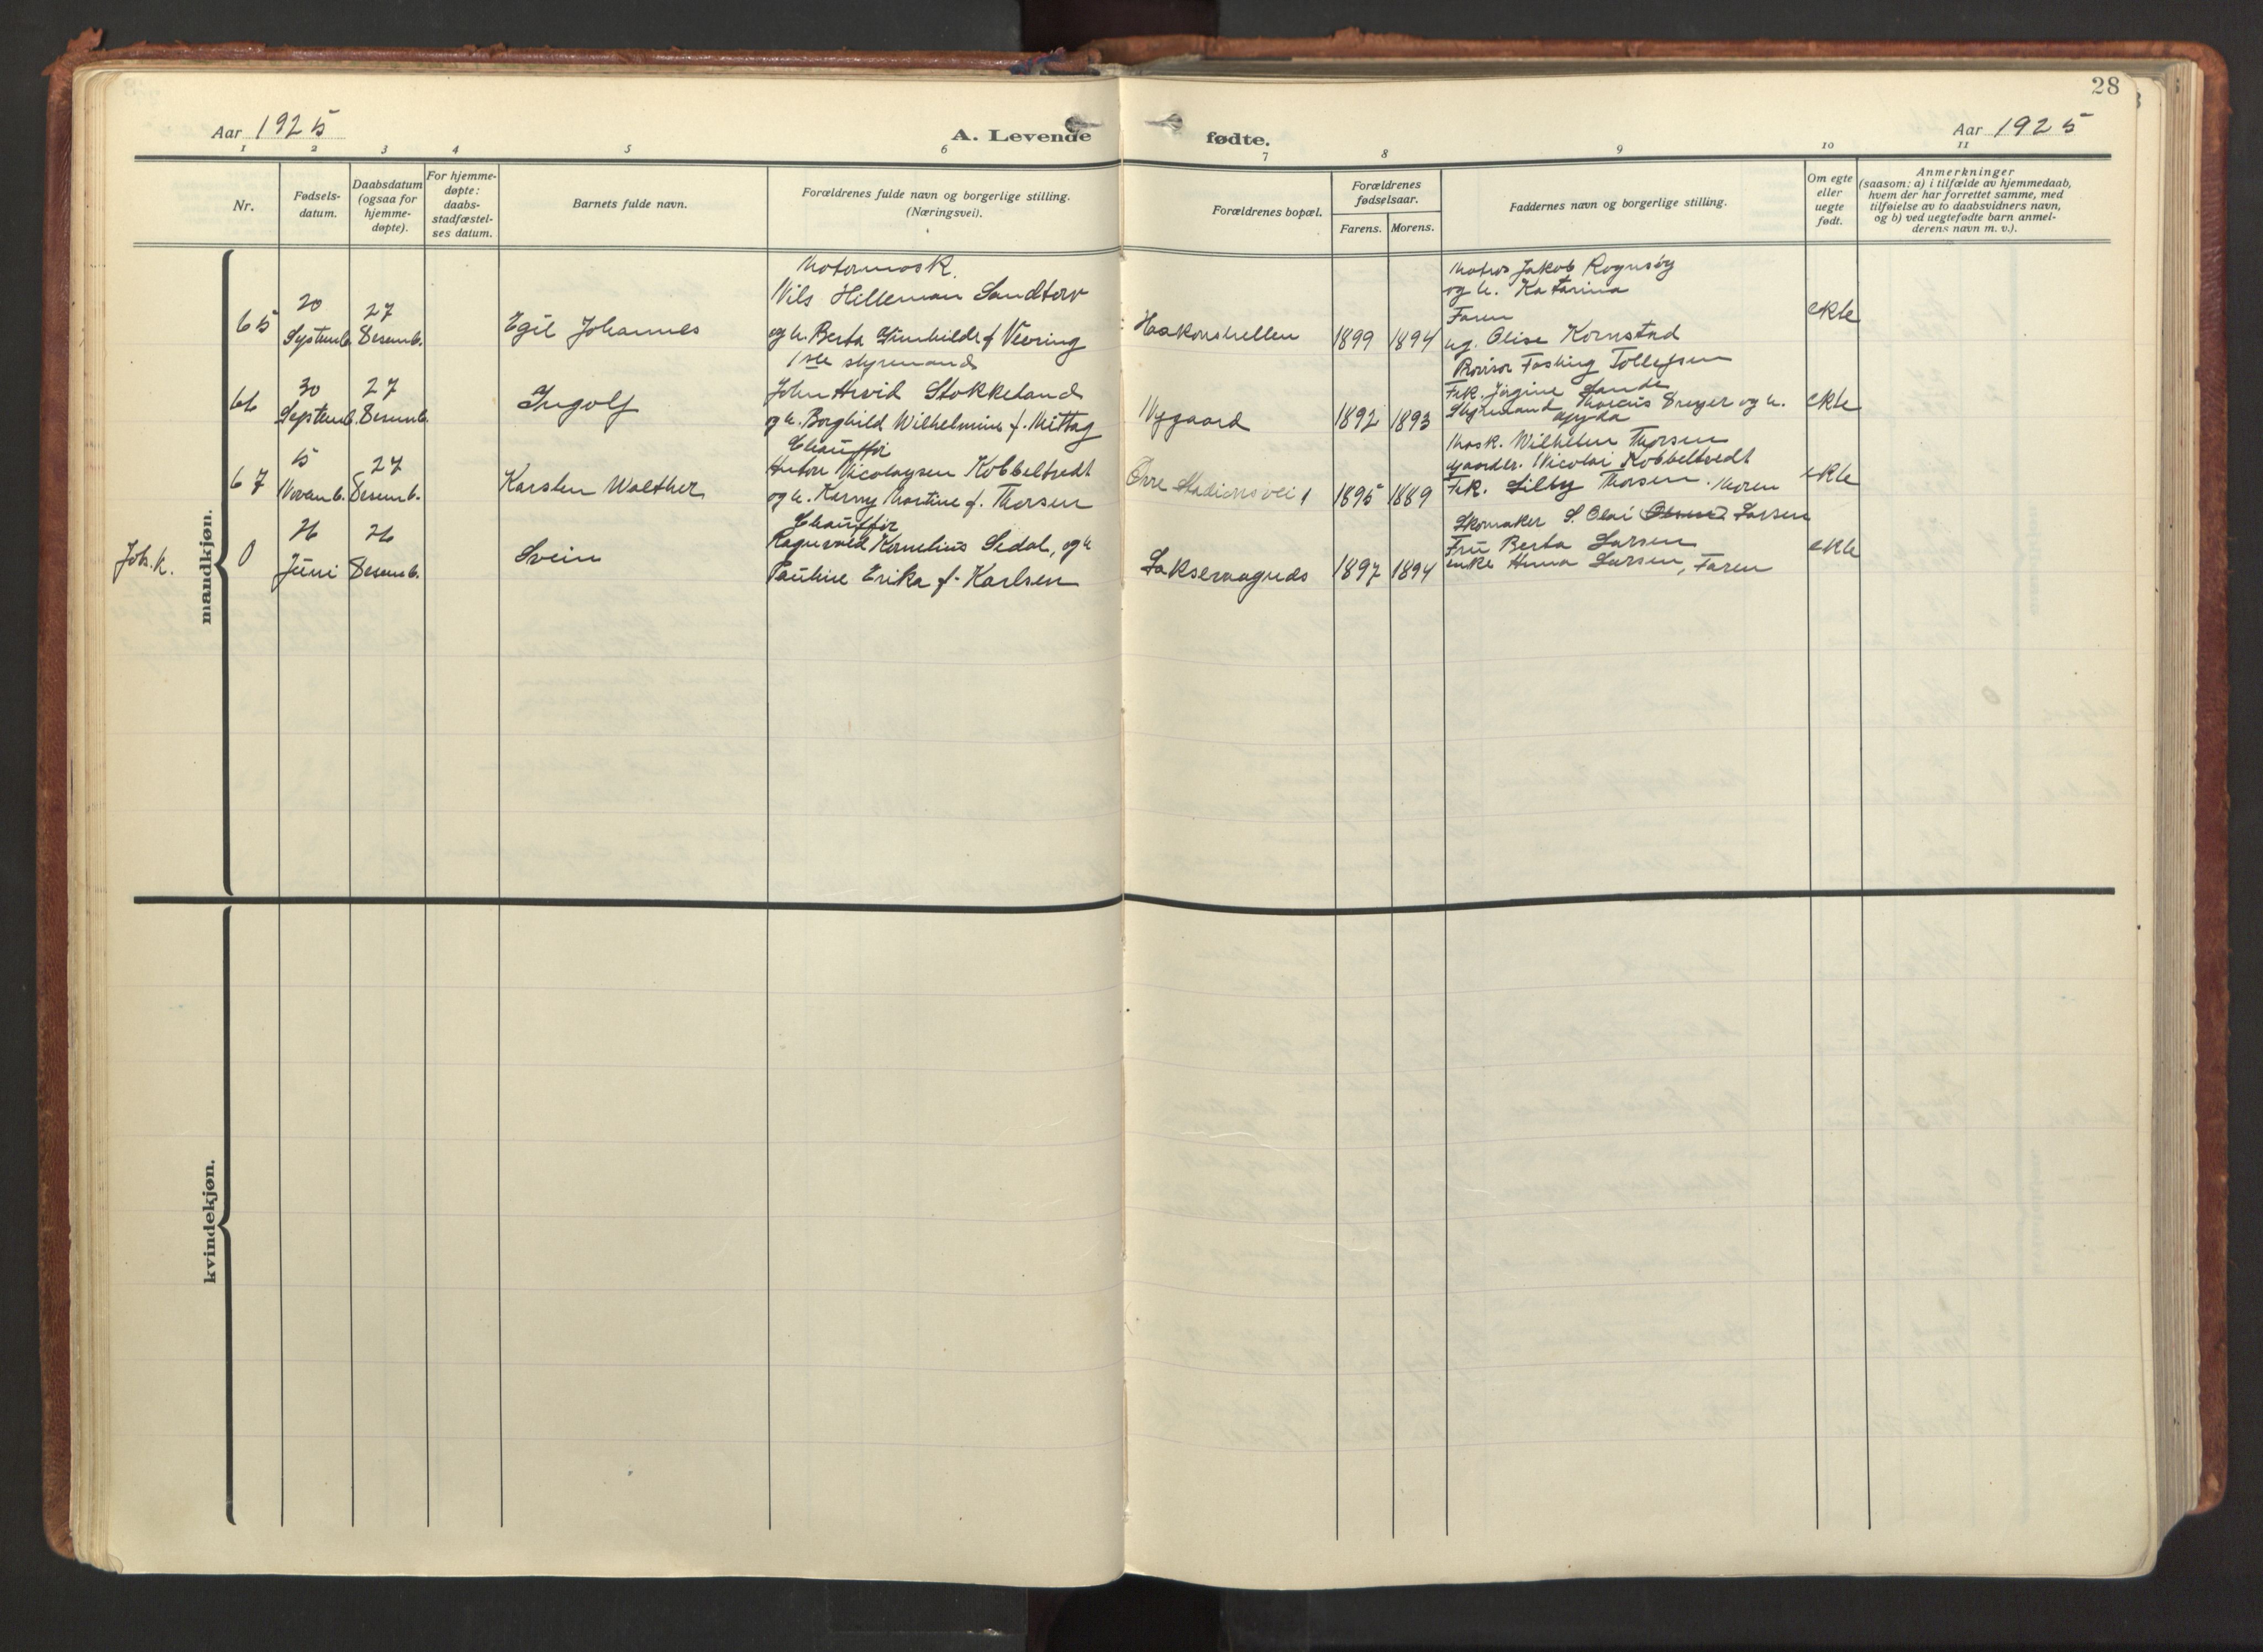 28
Aar 1925
A. Levende fødte.
Aar 1925
1 2 3 4 5 6 7 8 9 10 11
Nr.
Fødsels-
datum.
Daabsdatum
(ogsaa for
hjemme-
døpte).
For hjemme-
døpte:
daabs-
stadfæstel-
ses datum.
Barnets fulde navn.
Forældrenes fulde navn og borgerlige stilling.
(Næringsvei).
Forældrenes bopæl.
Forældrenes
fødselsaar.
Farens. Morens.
Faddernes navn og borgerlige stilling.
Om egte
eller
uegte
født.
Anmerkninger
(saasom: a) i tilfælde av hjemmedaab,
hvem der har forrettet samme, med
tilføielse av to daabsvidners navn,
og b) ved uegtefødte barn anmel-
derens navn m. v.).
mandkjøn.
65
20
Septemb.
27
Desemb.
Egil Johannes
Motormask.
Nils Hilleman Sandtorv
og h. Berta Gunhilda f. Vevring
Haakonshellen
1899 1894
Matros Jakob Rognsøy
og h. Katarina
Faren
ug. Olise Kornstad
ekte
66
30
Septemb.
27
Desemb.
Ingolf
1ste styrmand
John Arvid Stokkeland
og h. Borghild Wilhelmine f. Mittag
Nygaard
1892 1893
Provisor Fasting Tollefsen
Frk. Jørgine Sande
Styrmand Marcus Dreyer og h.
Apyda
ekte
67
15
Novemb.
27
Desemb.
Karsten Walther
Chauffør
Anton Nicolaysen Kobbeltvedt
og h. Kerny Martine f. Thorsen
Øvre Stadionsvei 1
1895 1889
Mask. Wilhelm Thorsen
gaardbr. Nicolai Kobbeltvedt
Frk. Lilly Thorsen. Moren
ekte
Joh. k.
0
26
Juni
26
Desemb.
Svein
Chauffør
Ragnvald Kornelius Sedal, og h
Pauline Erika f. Karlsen
Laksevaagneds
1897 1894
Skomaker S. Olai Larsen
Fru Berta Larsen
enke Anna Larsen, Faren
ekte
kvindekjøn.